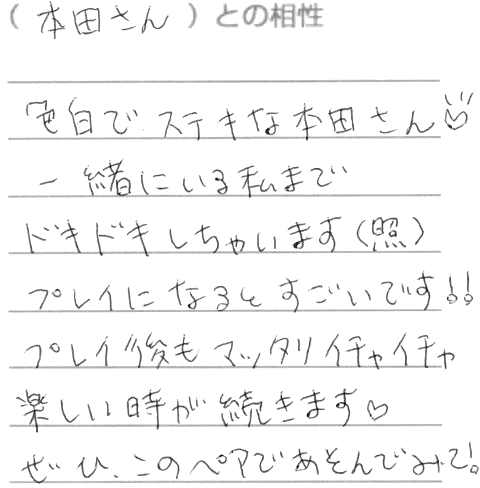 （ 本田さん ）との相性
色白で ステキな本田さん♡
一緒にいる私まで
ドキドキしちゃいます（照）
プレイになるとすごいです!!
プレイ後もマッタリイチャイチャ
楽しい時が続きます♡
ぜひ、このペアであそんでみて!